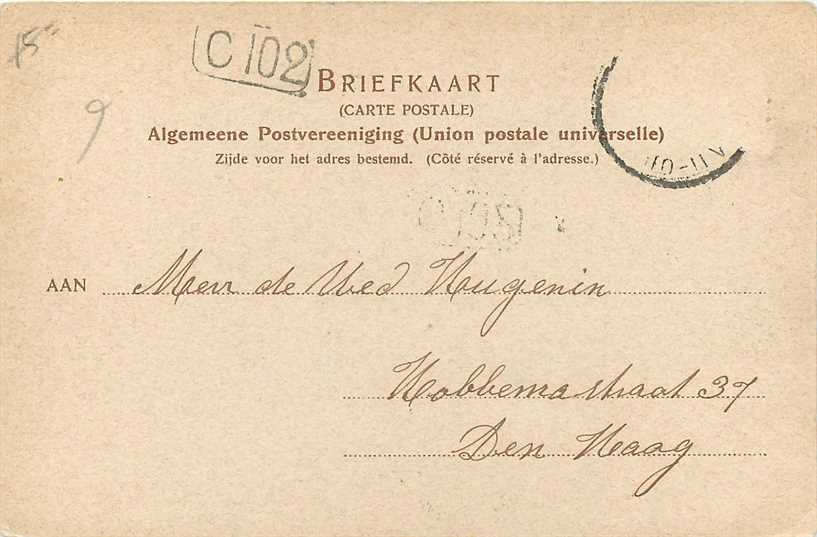 15
C 102
9
BRIEFKAART
(CARTE POSTALE)
Algemeene Postvereeniging (Union postale universelle)
Zijde voor het adres bestemd. (Côté réservé à l'adresse.)
AAN Mevr de Wed Hugenin
Hobbemastraat 37
Den Haag